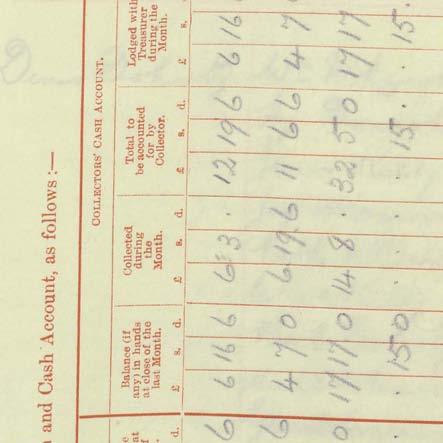 and Cash Account, as follows :—
COLLECTORS' CASH ACCOUNT.
Balance (if any) in hands at close of the last Month.
Collected during the Month.
Total to be accounted for by Collector.
Lodged with Treasurer during the Month.
d. £ s. d. £ s. d. £ s. d. £ s.
6 6 16 6 6 3 . 12 19 6 6 16
6 4 7 0 6 19 6 11 6 6 4 7
0 17 17 0 14 8 . 32 5 0 17 17
. 15 0 . . . . 15 . . 15.